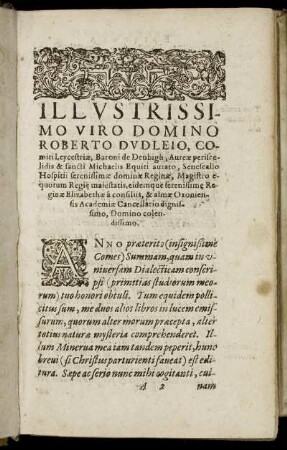 ILLVSTRISSI
MO VIRO DOMINO
ROBERTO DVDLEIO, CO-
miti Leycestriæ, Baroni de Denbigh, Aureæ perisce-
lidis & sancti Michaelis Equiti aurato, Senescallo
Hospitii serenissimæ dominæ Reginæ, Magistro e-
quorum Regię maiestatis, eidemque serenissimę Re-
ginæ Elizabethæ à consiliis, & almæ Oxonien-
sis Academiæ Cancellario dignis-
simo, Domino colen-
dissimo.
ANNO præterito (insignissime
Comes) Summam, quam in v-
niuersam Dialecticam conscri-
psi (primitias studiorum meo-
rum) tuo honori obtuli. Tum equidem polli-
citus sum, me duos alios libros in lucem emis-
surum, quorum alter morum præcepta, alter
totius natura mysteria comprehenderet. Il-
lum Minerua mea iam tandem peperit, hunc
breui (si Christus parturienti faueat) est edi-
tura. Sæpe ac serio nunc mihi cogitanti, cui-
A 2 nam